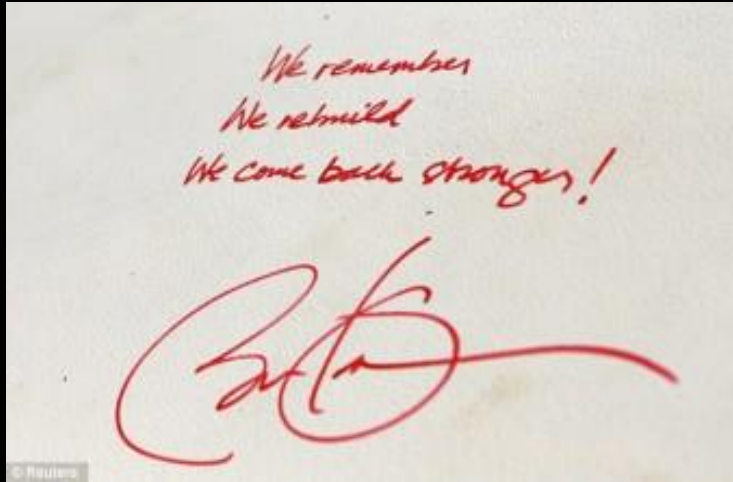 We remember
We rebuild
We come back stronger!
© Reuters